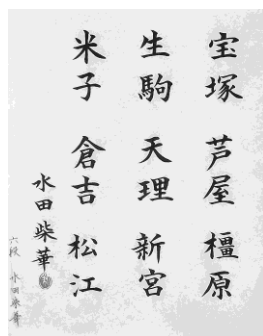 宝塚 芦屋 橿原
生駒 天理 新宮
米子 倉吉 松江
水田柴華
六段 水田柴華